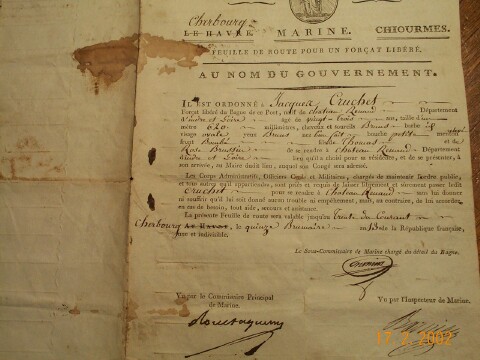 Cherbourg
LE HAVRE MARINE. CHIOURMES.
FEUILLE DE ROUTE POUR UN FORÇAT LIBÉRÉ.
AU NOM DU GOUVERNEMENT.
IL EST ORDONNÉ à Jacques Cruchet
Forçat libéré du Bagne de ce Port, natif de chateau Renaud Département
d'indre et Loire âgé de vingt-trois ans, taille d'un
mètre 620 millimètres, cheveux et sourcils Bruns barbe
visage ovale yeux Bruns nez bouche petite menton
front
de se rendre à chateau Renaud Département
d'indre et Loire lieu qu'il a choisi pour sa résidence, et de se présenter, à
son arrivée, au Maire dudit lieu, auquel son Congé sera adressé.
Les Corps Administratifs, Officiers Civils et Militaires, chargés de maintenir l'ordre public, et
tous autres qu'il appartiendra, sont priés et requis de laisser librement et surement passer ledit
Cruchet se rendre à Chateau Renaud sans
ni souffrir qu'il lui soit donné aucun trouble ni empêchement, mais, au contraire, de lui accorder,
au besoin, tout aide, secours et assistance.
La présente Feuille de route sera valable jusqu'au trente du Courant
Cherbourg AU HAVRE, le quinze Brumaire an 13 de la République française,
une et indivisible.
Le Sous-Commissaire de Marine chargé du détail du Bagne,
Vu par le Commissaire Principal
de Marine.
Vu par l'Inspecteur de Marine.
17 2 2002